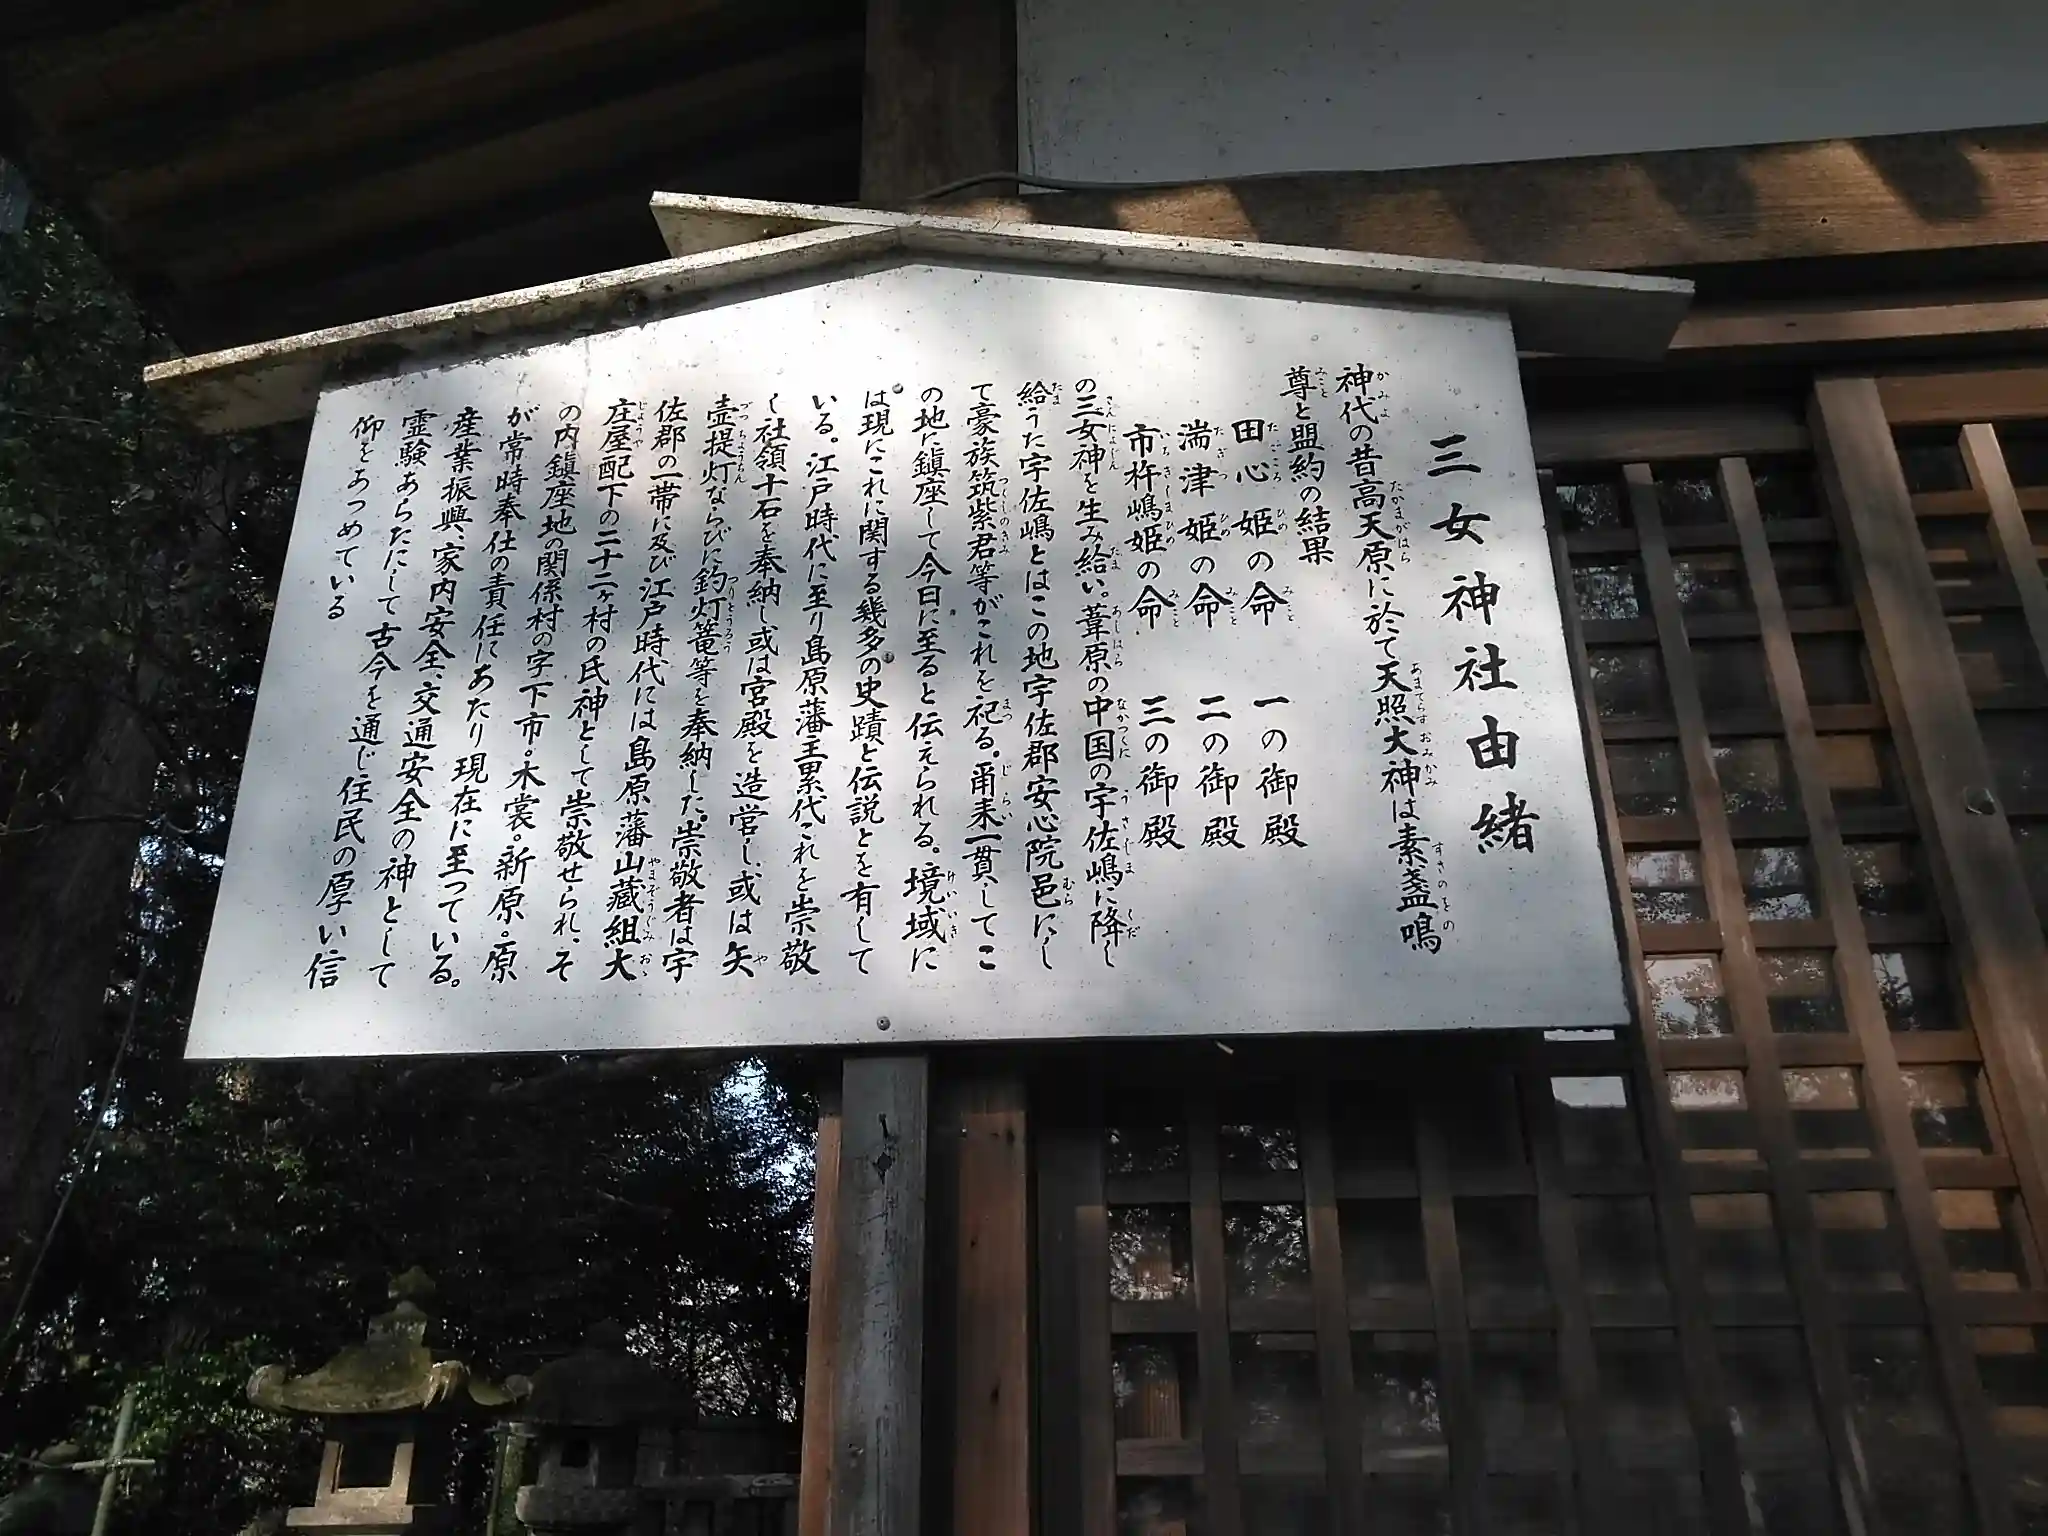 三女神社由緒
神代の昔高天原に於て天照大神は素盞鳴
尊と盟約の結果
田心姫の命 一の御殿
湍津姫の命 二の御殿
市杵嶋姫の命 三の御殿
の三女神を生み給い。葦原の中国の宇佐嶋に降し
給うた宇佐嶋とはこの地宇佐郡安心院邑にし
て豪族筑紫君等がこれを祀る。爾来一貫してこ
の地に鎮座して今日に至ると伝えられる。境域に
は現にこれに関する幾多の史蹟と伝説とを有して
いる。江戸時代に至り島原藩主累代これを崇敬
し社領十石を奉納し或は宮殿を造営し、或は矢
壷提灯ならびに釣灯篭等を奉納した。崇敬者は宇
佐郡の一帯に及び江戸時代には島原藩山蔵組大
庄屋配下の二十二ヶ村の氏神として崇敬せられ、そ
の内鎮座地の関係村の字下市。木裳。新原。原
が常時奉仕の責任にあたり現在に至っている。
産業振興、家内安全、交通安全の神として
霊験あらたにして古今を通じ住民の厚い信
仰をあつめている